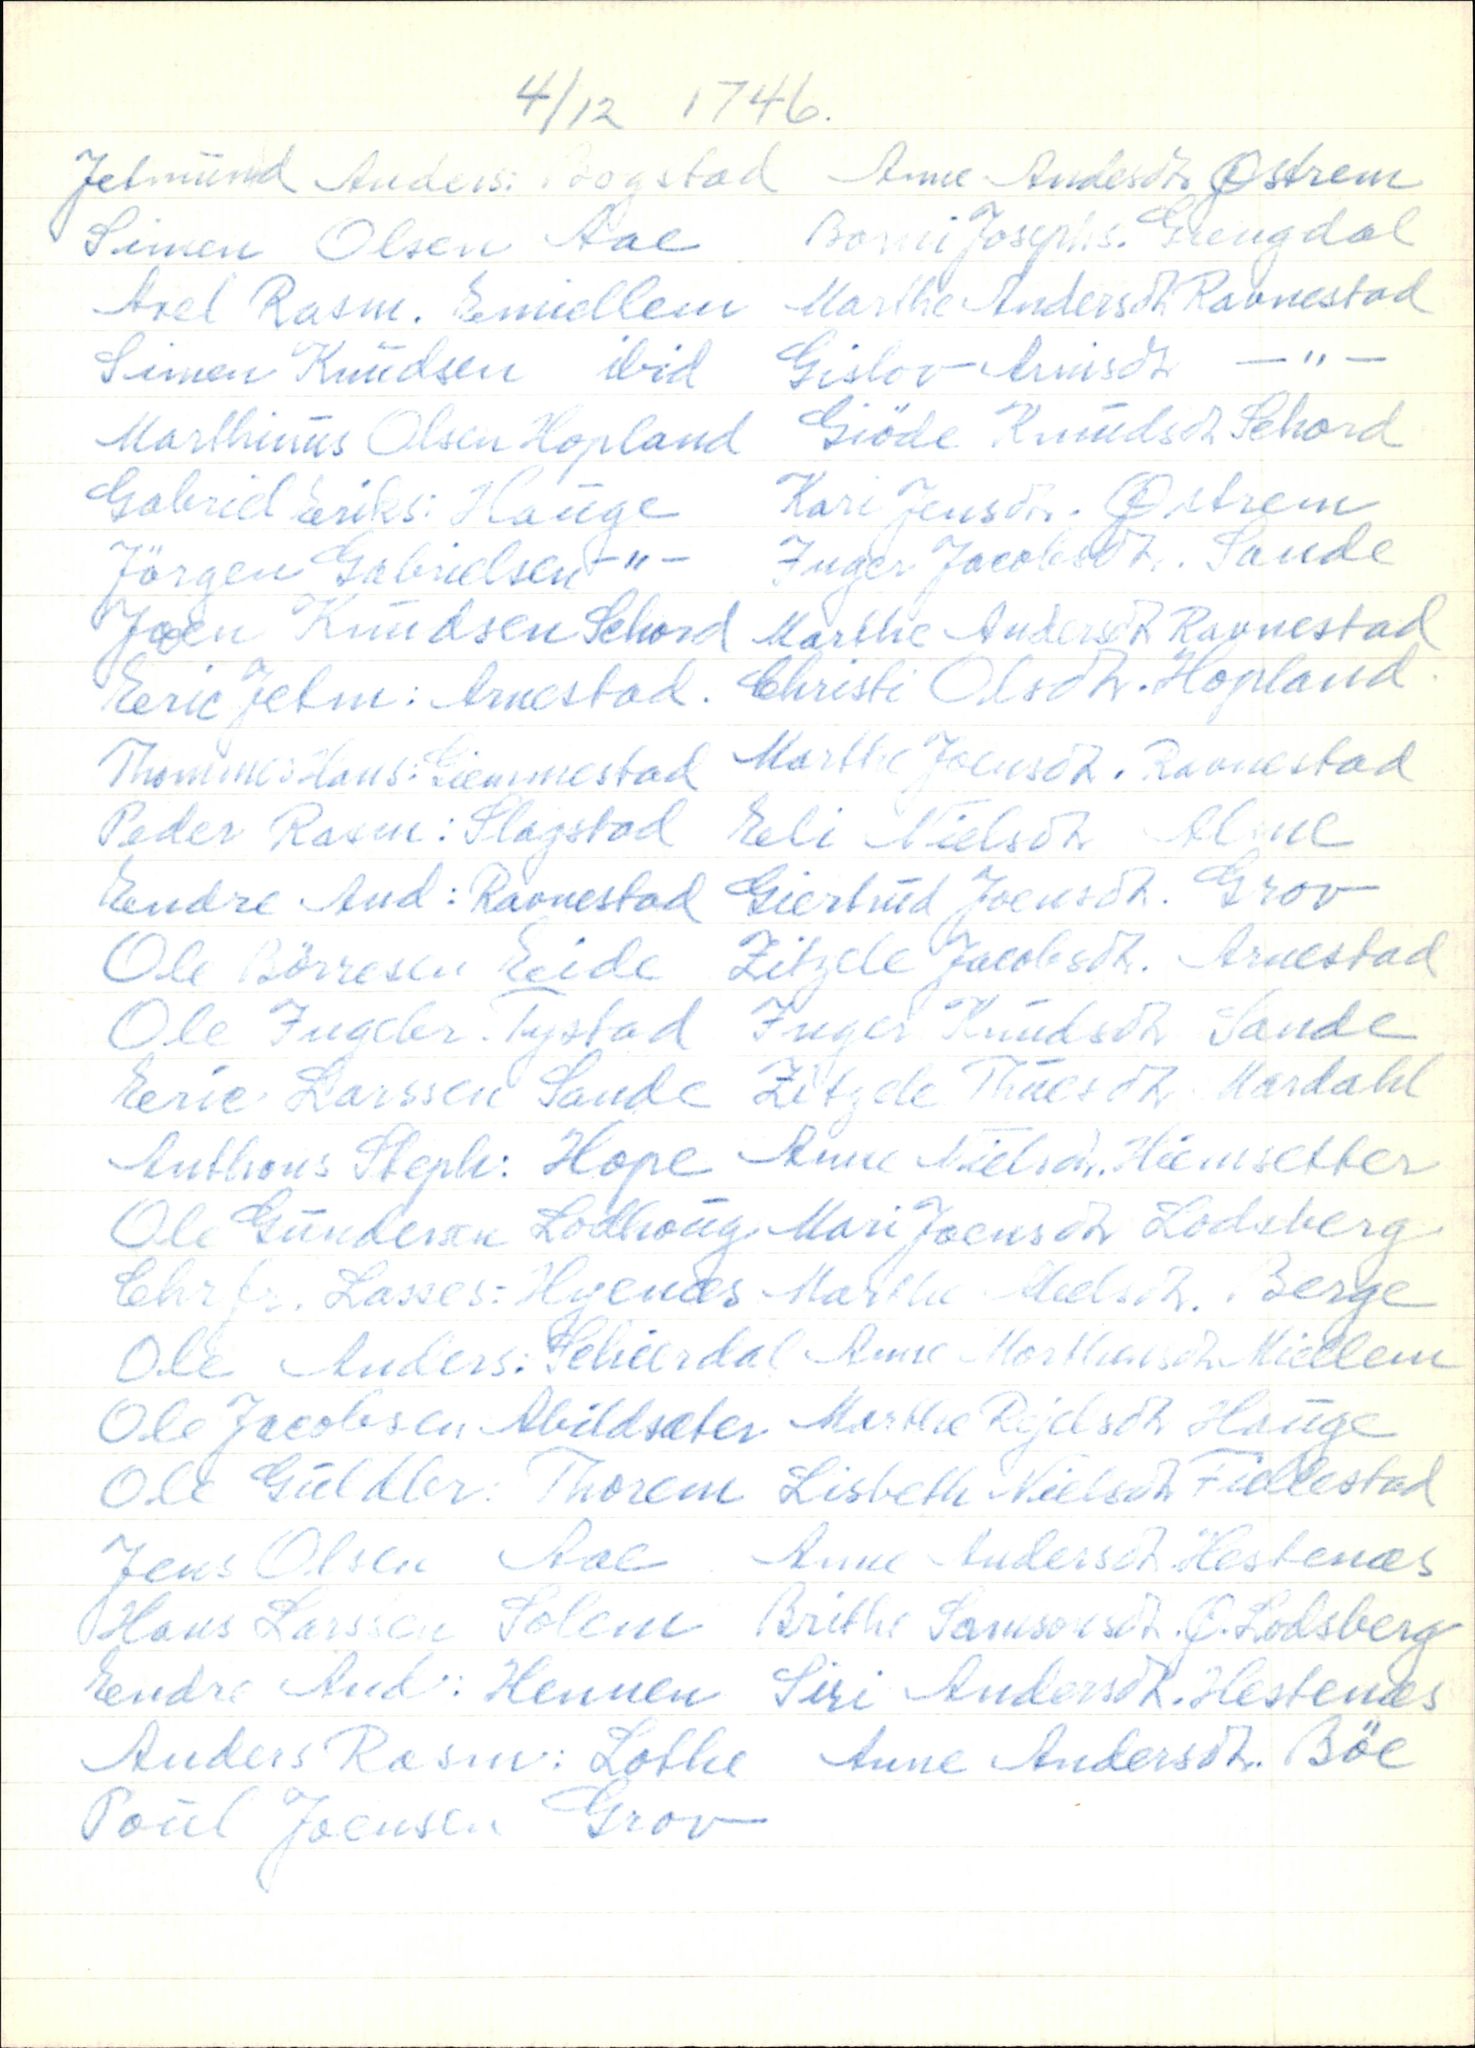 4/12 1746.
Jetmünd Anders: Bogstad Anne Andesdtr Østrem
Simen Olsen Aae Borni Josephs. Grengdal
Axel Rasm. Emiellem Marthe Andersdtr Ravnestad
Simen Knüdsen ibid Gislov Arnisdtr —"—
Marthinüs Olsen Hopland Giöde Knüdsdtr Sehord
Gabriel Eriks: Haüge Kari Jensdtr. Østrem
Jörgen Gabrielsen —"— Inger Jacobsdtr. Sande
Joen Knüdsen Sehord Marthe Andersdtr Ravnestad
Eeric Jetm: Arnestad. Christi Olsdtr. Hopland.
Thommes Hans: Giemmestad Marthe Joensdtr. Ravnestad
Peder Rasm: Slagstad Eeli Nielsdtr Alme
Eendre And: Ravnestad Giertrüd Joensdtr. Grov
Ole Börresen Eeide Zitzele Jacobsdtr. Arnestad
Ole Ingebr. Tystad Inger Knüdsdtr Sande
Eeric Larssen Sande Zitzele Thüesdtr Mardahl
Anthons Steph: Hope Anne Nielsdtr. Hiemsetter
Ole Gündersen Lodhoüg Mari Joensdtr Lodsberg
Chrfr. Lasses: Hyenæs Marthe Nielsdtr. Berge
Ole Anders: Schierdal Anne Morthensdtr Miellem
Ole Jacobsen Abildsæter Marthe Rejelsdtr Haüge
Ole Güldbr: Thorem Lisbeth Nielsdtr Fiellestad
Jens Olsen Aae Anne Andersdtr. Hestenæs
Hans Larssen Solem Brithe Samsonsdtr. Ø. Lodsberg
Eendre And: Hennen Siri Andersdtr. Hestenæs
Anders Rasm: Lothe Anne Andersdtr. Böe
Poül Joensen Grov